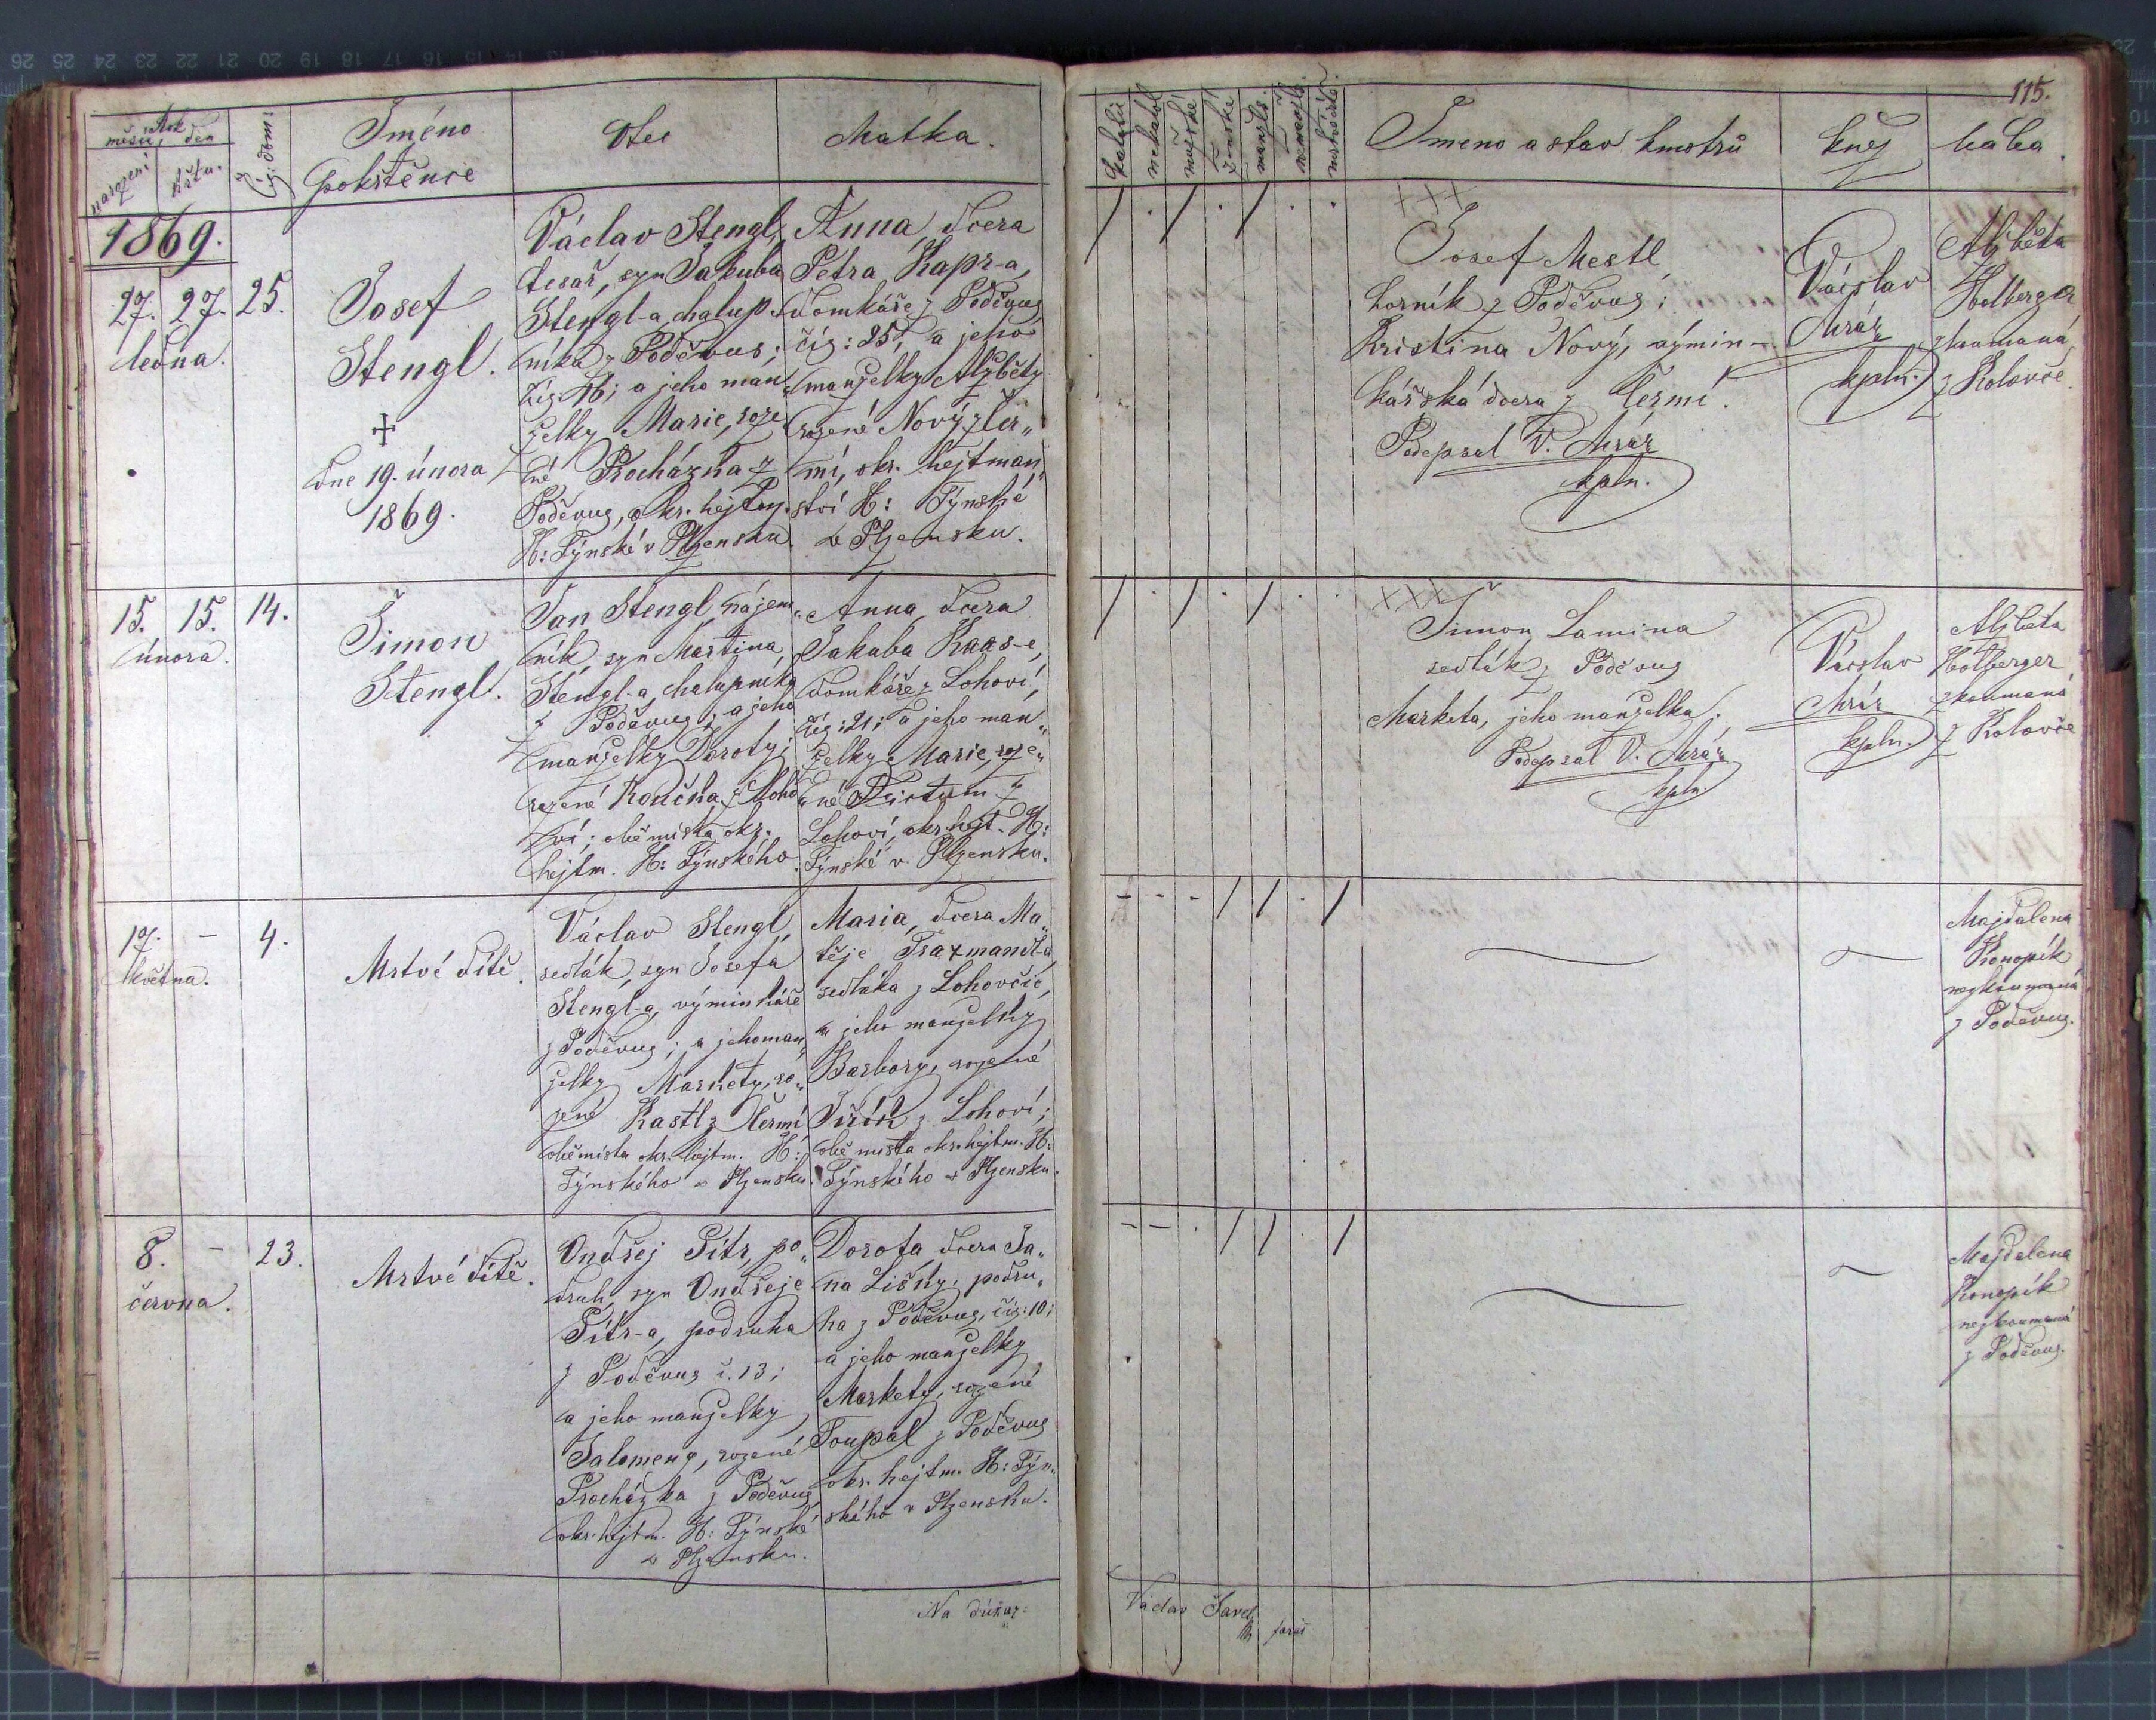 115.
Rok
měsíc, den
narození
křtu.
Čís: dom:
Jméno
pokřtěnce
Otec
Matka.
katolic
nekatol
mužské
ženské
manžels.
nemanžels.
mrtvě
Jmeno a stav kmotrů
kněz
bába.
1869.
27. 27. 25.
ledna.
Josef
Stengl.
†
dne 19. února
1869.
Václav Stengl,
tesař, syn Jakuba
Stengl-a, chalup-
níka z Poděvus;
čís: 16; a jeho man-
želky Marie, roze-
né Procházka z
Poděvus, okr. hejtm.
H: Týnské v Plzensku.
Anna, dcera
Petra Kapr-a,
domkáře z Poděvus,
čís: 25; a jeho
manželky Alžběty
rozené Nový z Čer„
mí, okr. hejtman„
ství H: Týnské
v Plzensku.
/ . / . / . .
+++
Josef Mestl
borník z Poděvus;
Kristina Nový, výmin-
kářská dcera z Čermí.
Podepsal V. Mráz
kpln.
Václav
Mráz
kpln.
Alžběta
Holberger
zkoumaná
z Koloveče.
15. 15. 14.
února.
Šimon
Stengl.
Jan Stengl, nájem„
ník, syn Martina
Stengl-a, chalupníka
z Poděvus; a jeho
manželky Doroty;
rozené Koučka z Loho
ví; obě místa okr.
hejtm. H: Týnského.
Anna, dcera
Jakuba Kaas-e,
domkáře z Lohoví,
čís: 21; a jeho man„
želky Marie, roze„
né
Lohoví, okr. hejt. H:
Týnské v Plzensku.
/ . / . / . .
XXX
Šimon Lamina
sedlák z Poděvus
Marketa, jeho manželka.
Podepsal V. Mráz
kpln.
Václav
Mráz
kpln.
Alžběta
Holberger
zkoumaná
z Koloveče
17. – 4.
května.
Mrtvé dítě.
Václav Stengl,
sedlák, syn Josefa
Stengl-a, výminkáře
z Poděvus; a jeho man„
želky Markety, ro„
zené Kastl z Čermí
obě místa okr. hejtm. H:
Týnského v Plzensku.
Maria, dcera Ma„
těje
sedláka z Lohovčic,
a jeho manželky
Barbory, rozené
Jiřík z Lohoví;
obě místa okr. hejtm. H:
Týnského v Plzensku.
– – – / / . /
Majdalena
Konopík
nezkoumaná
z Poděvus.
8. – 23.
června.
Mrtvé dítě.
Ondřej Pítr, po„
druh, syn Ondřeje
Pítr-a, podruha
z Poděvus č. 13;
a jeho manželky
Salomeny, rozené
Procházka z Poděvus,
okr. hejtm. H: Týnské
v Plzensku.
Dorota dcera Ja„
na Lišky, podru„
ha z Poděvus, čís: 10;
a jeho manželky
Markety, rozené
Toupal z Poděvus
okr. hejtm. H: Týn„
ského v Plzensku.
– – . / / . /
Majdalena
Konopík
nezkoumaná
z Poděvus.
Na důkaz:
Václav
farář